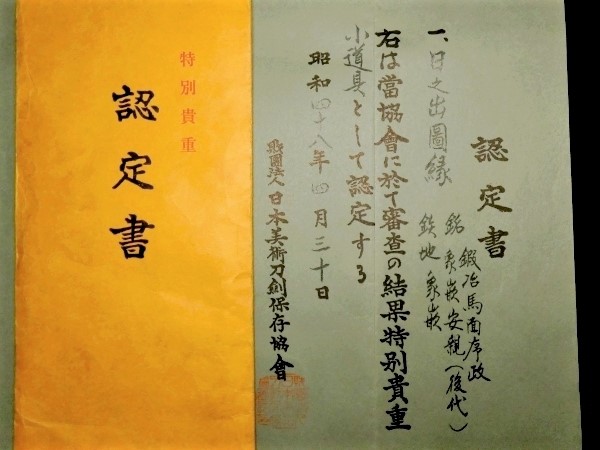 特別貴重
認定書
認定書
一、日之出圖縁
銘 鍛冶馬面序政
象嵌安親（後代）
鉄地象嵌
右は當協會に於て審査の結果特別貴重
小道具として認定する
昭和四十八年四月三十日
財團法人日本美術刀劍保存協會